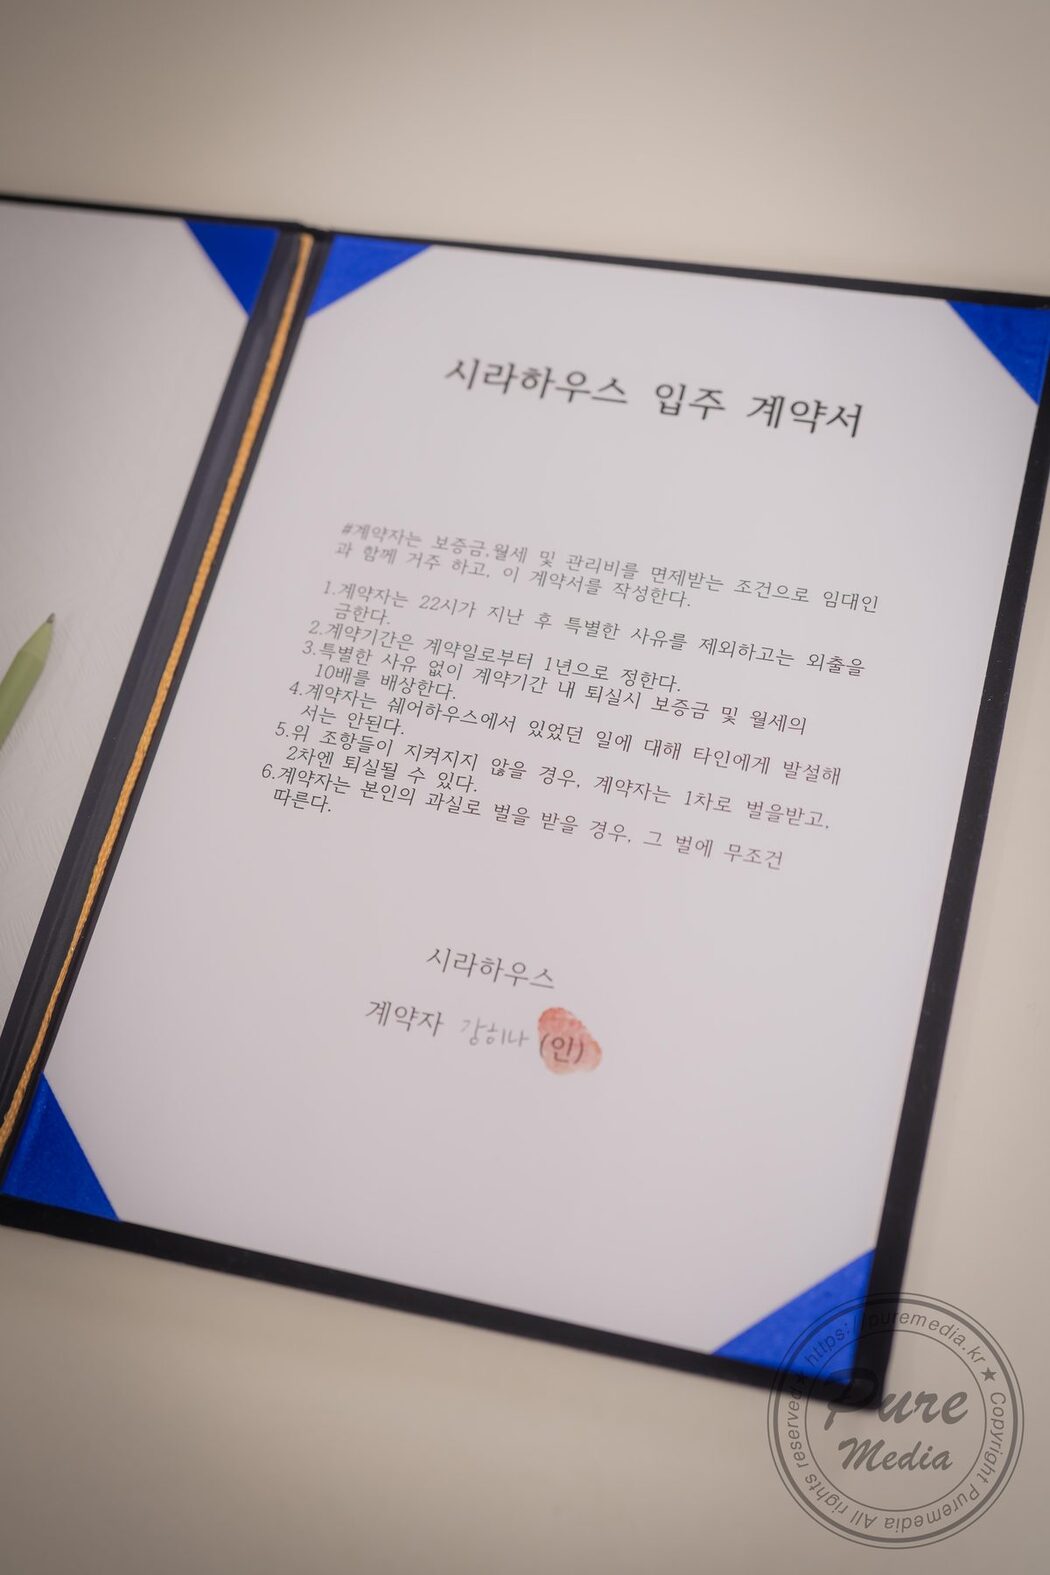 시라하우스 입주 계약서
#계약자는 보증금,월세 및 관리비를 면제받는 조건으로 임대인
과 함께 거주 하고, 이 계약서를 작성한다.
1.계약자는 22시가 지난 후 특별한 사유를 제외하고는 외출을
금한다.
2.계약기간은 계약일로부터 1년으로 정한다.
3.특별한 사유 없이 계약기간 내 퇴실시 보증금 및 월세의
10배를 배상한다.
4.계약자는 쉐어하우스에서 있었던 일에 대해 타인에게 발설해
서는 안된다.
5.위 조항들이 지켜지지 않을 경우, 계약자는 1차로 벌을받고,
2차엔 퇴실될 수 있다.
6.계약자는 본인의 과실로 벌을 받을 경우, 그 벌에 무조건
따른다.
시라하우스
계약자 강히나 (인)
https://puremedia.kr ★ Copyright Puremedia All rights reserved ★
Pure
Media